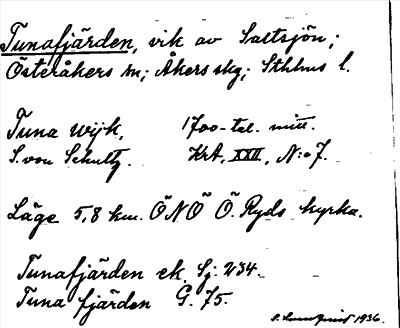 Tunafjärden, vik av Saltsjön;
Österåkers sn; Åkers skg; Sthlms l.
Tuna wijk, 1700-tal. mitt.
S. von Schultz. KrA, XXII, N:o 7.
Läge 5,8 km. ÖNÖ Ö. Ryds kyrka.
Tunafjärden ek. Sj. 234.
Tuna fjärden G. 75.
1936.